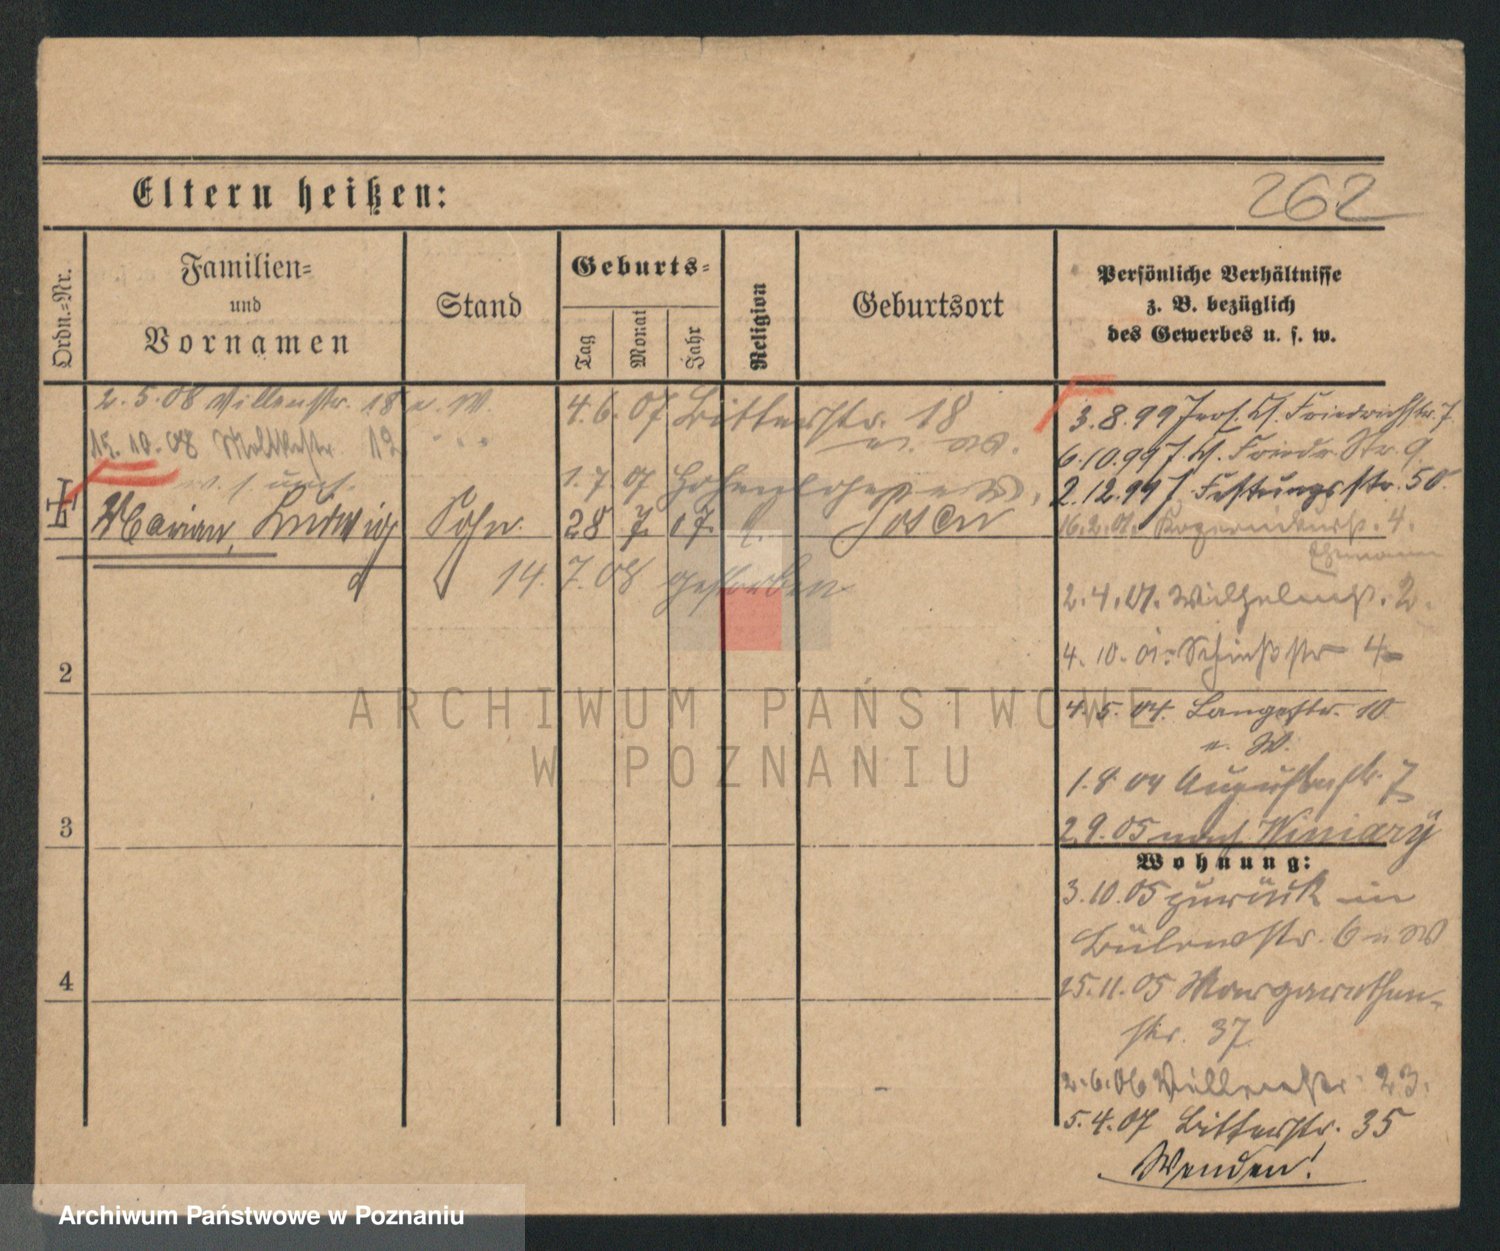 Eltern heißen:
262
Ordn.-Nr.
Familien=
und
Vornamen
Stand
Geburts=
Tag
Monat
Jahr
Religion
Geburtsort
Persönliche Verhältnisse
z. B. bezüglich
des Gewerbes u. s. w.
2.5.08 Villenstr. 18 u. W.
4.6.07 Bitterstr. 18
15.10.08 Moltkestr. 12
1.7.07
Marian, Ludwig
Sohn
28 7. 07.
Posen
14.7.08 gestorben
3.8.99 Friedrichstr. 7
6.10.99 Friedr. Str. 9
2.12.99 Festungsstr. 50
16.2.01. 4.
Ehemann
2.4.01. Wilhelmstr. 2.
4.10.01. Schießstr 4
4.5.04. Langestr. 10
u. W.
1.8.04 Augustastr. 7
2.9.05 nach Winiary
Wohnung:
3.10.05 zurück in
Bülowstr. 6 u W
25.11.05 Margarethen-
str. 37
2.6.06 Villenstr. 23.
5.4.07 Bitterstr. 35
Wenden!
2
3
4
ARCHIWUM PAŃSTWOWE
W POZNANIU
Archiwum Państwowe w Poznaniu